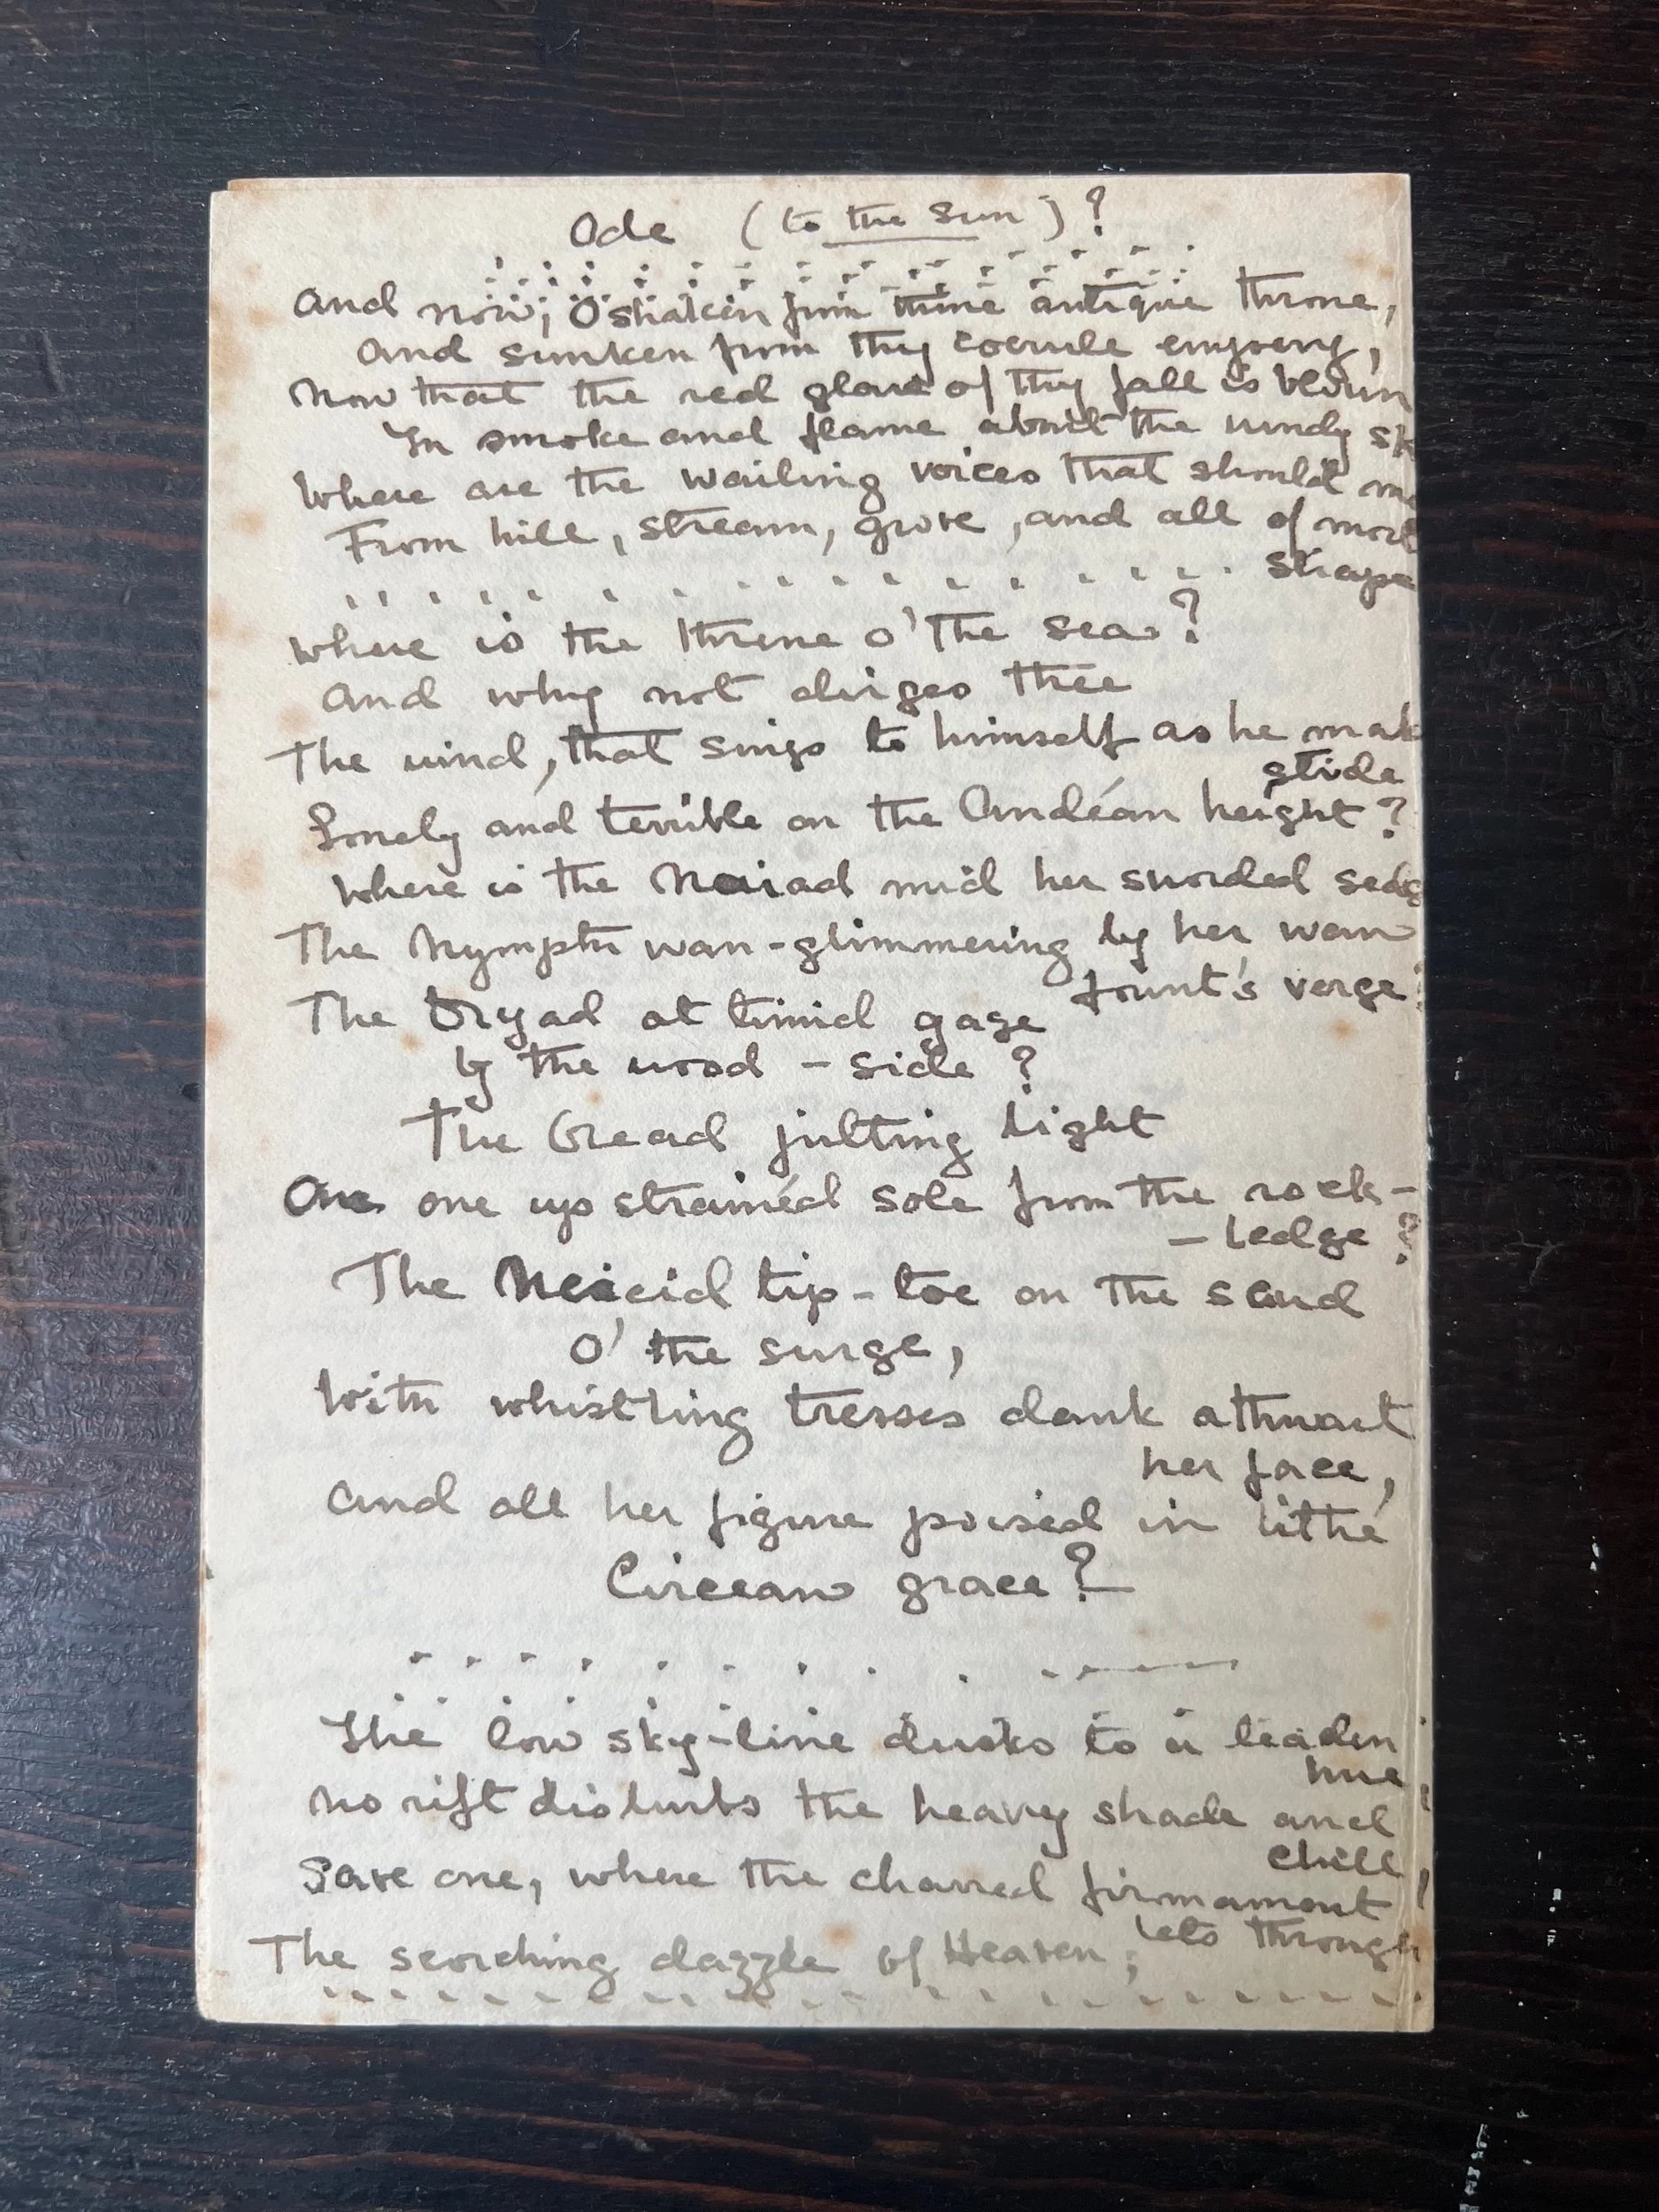 Ode (to the Sun)?
And now, O shaken from thine antique throne,
And sunken from thy coerule empery,
Now that the red glare of thy fall is blown
In smoke and flame about the windy sk
Where are the wailing voices that should me
From hill, stream, grove, and all of mort
shape
Where is the threne o' the sea?
And why not dirges thee
The wind, that sings to himself as he mak
stride
Lonely and terrible on the Andéan height?
Where is the Naiad mid her sworded sedg
The Nymph wan-glimmering by her wan
fount's verge?
The Dryad at timid gaze
by the wood-side?
The Oread jutting light
One one up strainéd sole from the rock-
-ledge?
The Nereid tip-toe on the scud
o' the surge,
With whistling tresses dank athwart
her face,
And all her figure poised in lithe
Circean grace?
The low sky-line dusks to a leaden
hue,
No rift disturbs the heavy shade and
chill,
Save one, where the charred firmament
lets through
The scorching dazzle of Heaven;